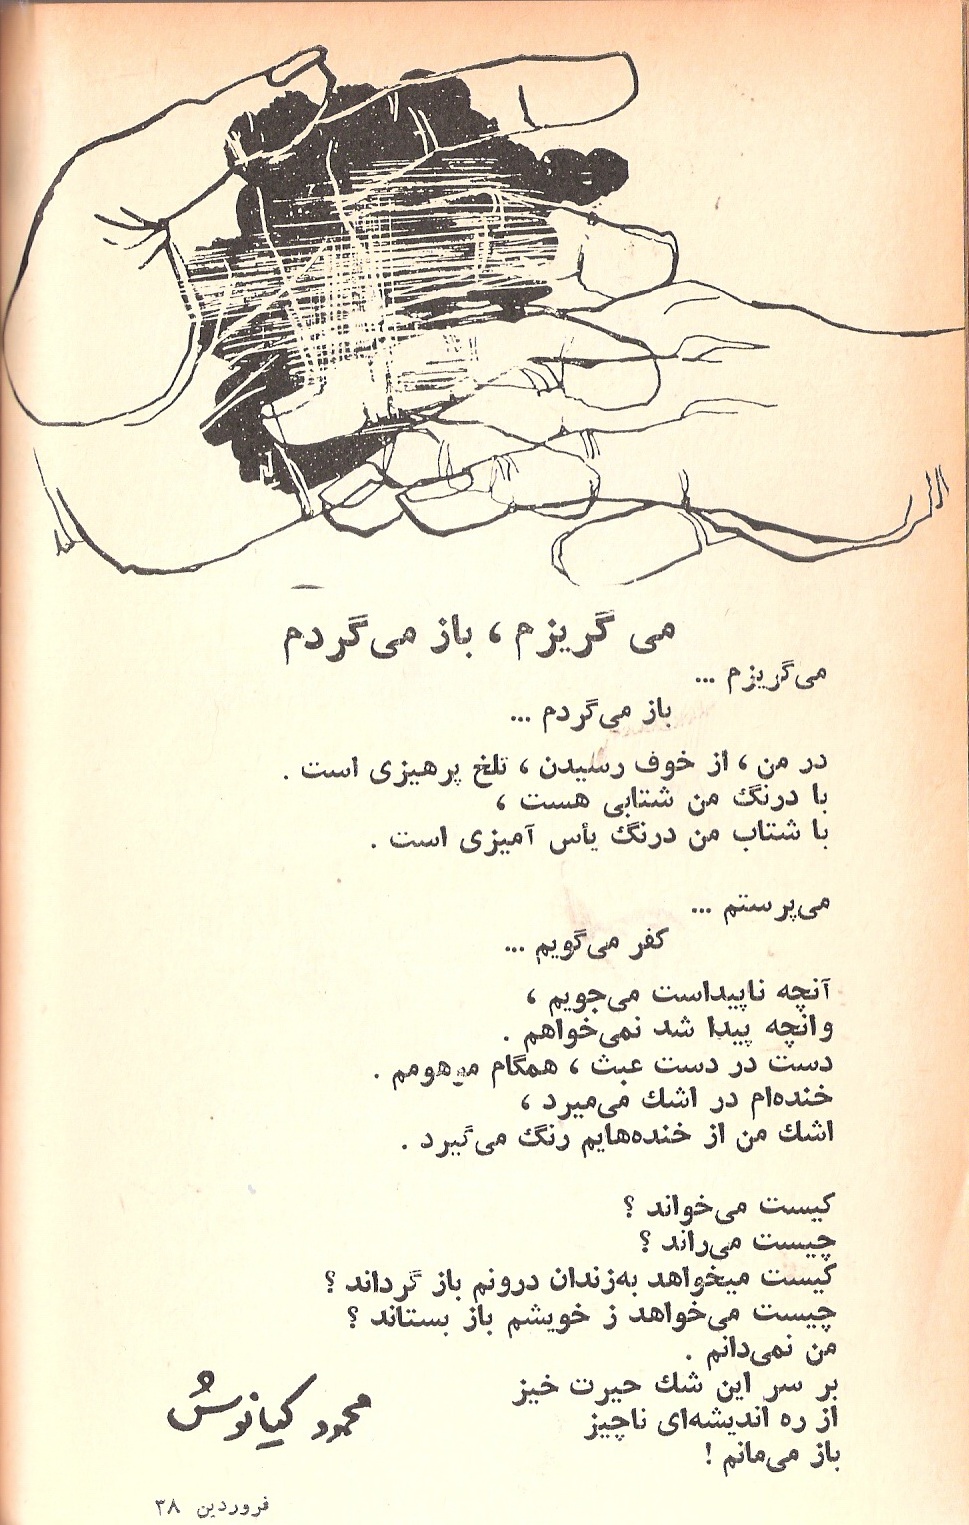 می گریزم ، باز می‌گردم
می‌گریزم ...
باز می‌گردم ...
در من ، از خوف رسیدن ، تلخ پرهیزی است .
با درنگ من شتابی هست ،
با شتاب من درنگ یأس آمیزی است .
می‌پرستم ...
کفر می‌گویم ...
آنچه ناپیداست می‌جویم ،
وانچه پیدا شد نمی‌خواهم .
دست در دست عبث ، همگام موهومم .
خنده‌ام در اشک می‌میرد ،
اشک من از خنده‌هایم رنگ می‌گیرد .
کیست می‌خواند ؟
چیست می‌راند ؟
کیست میخواهد به‌زندان درونم باز گرداند ؟
چیست می‌خواهد ز خویشم باز بستاند ؟
من نمی‌دانم .
بر سر این شک حیرت خیز
از ره اندیشه‌ای ناچیز
باز می‌مانم !
محمود کیانوش
فروردین ۳۸